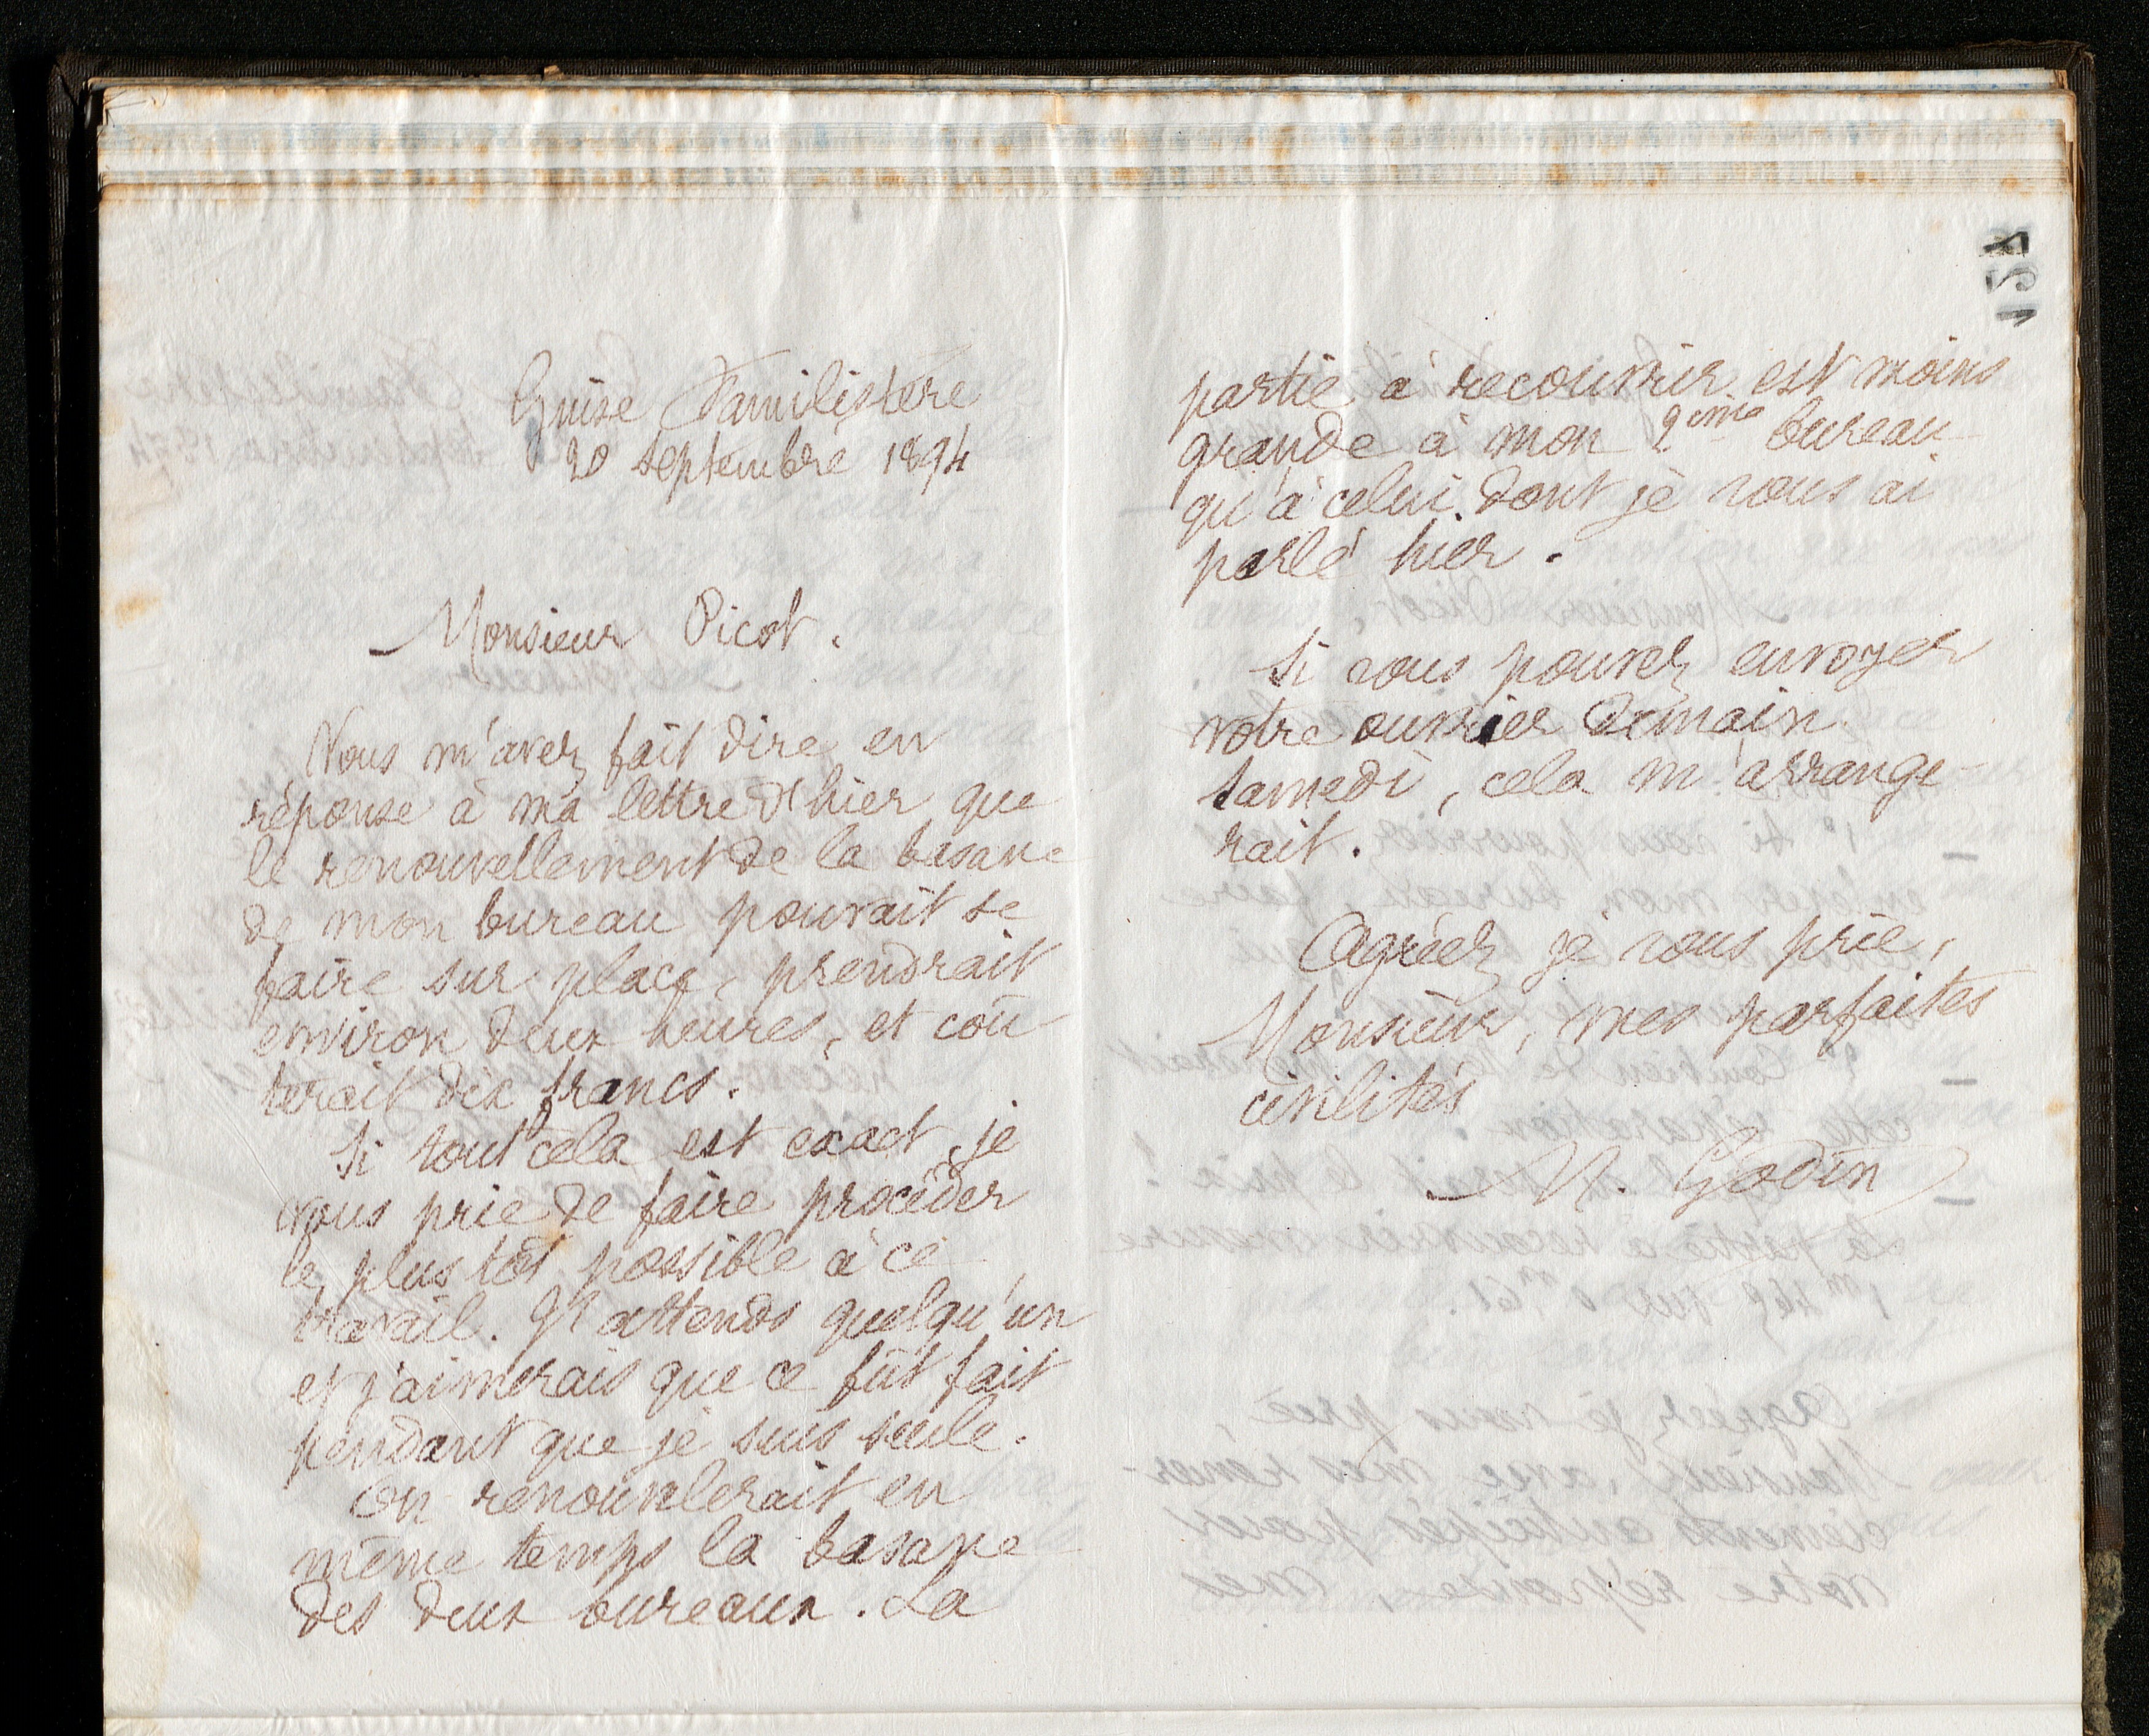 Guise Familistère
20 septembre 1894
Monsieur Picot.
Vous m'avez fait dire en
réponse à ma lettre d'hier que
le renouvellement de la basane
de mon bureau pouvait se
faire sur place, prendrait
environ deux heures, et coû
terait dix francs.
Si tout cela est exact, je
vous prie de faire procéder
le plus tôt possible à ce
travail. J'attends quelqu'un
et j'aimerais que ce fût fait
pendant que je suis seule.
On renouvlerait en
même temps la basane
des deux bureaux. La
154
partie à recouvrir est moins
grande à mon 2eme bureau
qu'à celui dont je vous ai
parlé hier.
Si vous pouvez envoyer
votre ouvrier demain
samedi, cela m'arrange-
rait.
Agréez je vous prie,
Monsieur, mes parfaites
civilités
M. Godin